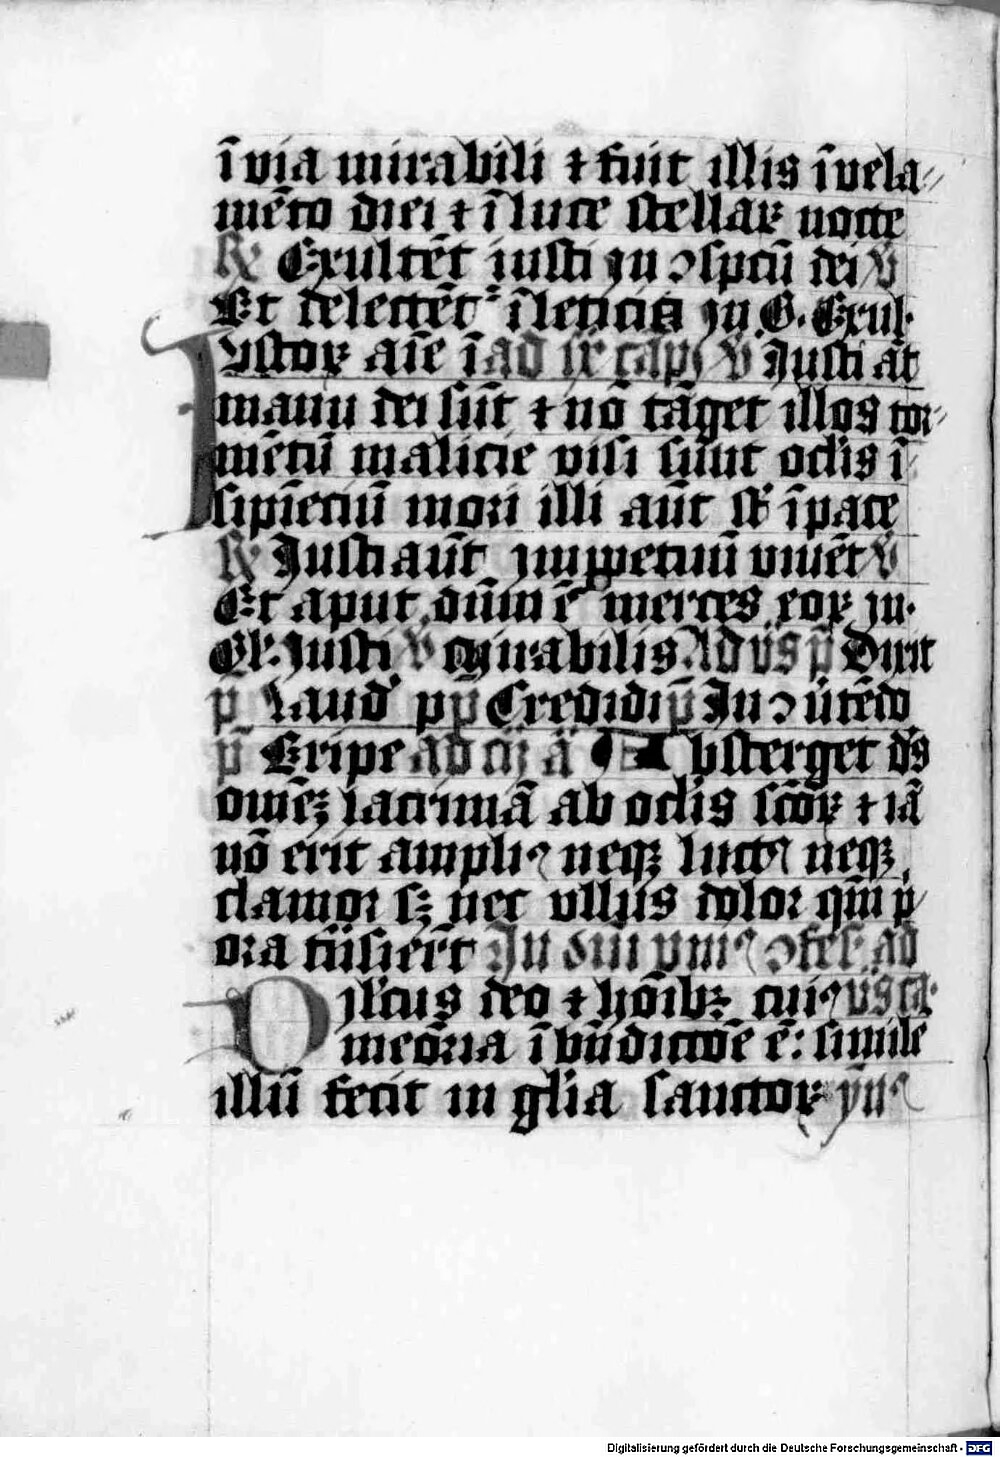 ī via mirabili ⁊ fuit illis ī vela⸗
mēto diei ⁊ ī luce stellaꝝ nocte
℟ Exultēt iusti ın ↄspcū dei ℣
Et delectēt᷑ ī leticia ın G. Exul·
Iustoꝝ aīe ī ad ix cap̄ ℣ Justi āt
manu dei sūt ⁊ nō tāget illos tor⸗
mētū malicie visi sunt oclis ī
sipīeciū mori illi aūt st̄ ī pace
℟ Justi aūt ın ꝑpetuū viuēt ℣
Et aput dūm ē merces eoꝝ ın·
Gl· Justi ℣ Mirabilis Ad v̄s p̄ Dixit
p̄ Laud' pp̄ Credidi p̄ In ↄ ūtēdo
p̄ Eripe ad a᷑ Absterget dn̄s
omēꝫ lacrimā ab oclis scōꝝ ⁊ iā
nō erit ampliꝰ neqꝫ luctꝰ neqꝫ
clamor sꝫ nec vllus dolor qm̄ p̄
ora tn̄sierūt In ↄfes· ad
Dilcūs deo ⁊ hōibꝫ cuiꝰ v̄s ca·
meōria ī bn̄dictōe ē: simile
illū fecit in glīa sanctoꝝ yn̄ꝰ
Digitalisierung gefördert durch die Deutsche Forschungsgemeinschaft - DFG